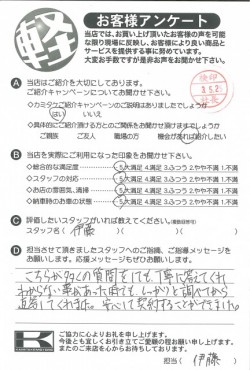 軽
お客様アンケート
当店では、お買い上げ頂いたお客様の声を可能
な限り現場に反映し、お客様により良い商品と
サービスを提供する事に努めています。
大変お手数ですが是非お声をお聞かせ下さい。
A 当店はご紹介を大切にしております。
ご紹介キャンペーンについてお聞かせ下さい。
はい いいえ
ご親族 ご友人 職場の方
B 当店を実際にご利用になった印象をお聞かせ下さい。
◇総合的な満足度 5.大満足 4.満足 3.ふつう 2.やや不満 1.不満
◇スタッフの対応 5.大満足 4.満足 3.ふつう 2.やや不満 1.不満
◇お店の雰囲気、清掃 5.大満足 4.満足 3.ふつう 2.やや不満 1.不満
◇納車時のお車の状態 5.大満足 4.満足 3.ふつう 2.やや不満 1.不満
C 評価したいスタッフがいれば教えてください。
スタッフ名( 伊藤 )
D 担当させて頂きましたスタッフへのご指摘、ご指導メッセージを
お願いします。応援メッセージもぜひお願いします。
こちらが多くの質問をしても、丁寧に答えてくれ
わからない事があった時でも、しっかりと調べてから
返答してくれました。安心して契約することができました。
ご協力に心よりお礼を申し上げます。
今後とも宜しくお引き立てご愛顧の程お願い申し上げます。
またのご来店を心からお待ちしております。
K
担当( 伊藤 )